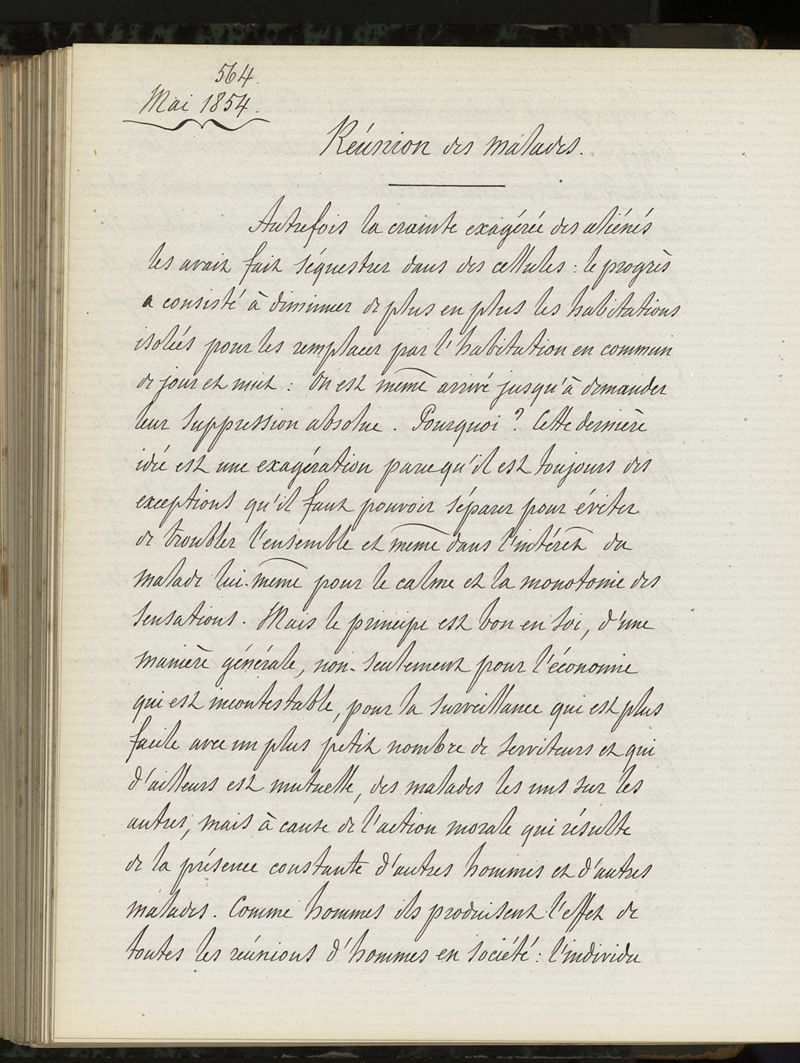 564.
Mai 1854.
Réunion des malades.
Autrefois la crainte exagérée des aliénés
les avait fait séquestrer dans des cellules : le progrès
a consisté à diminuer de plus en plus les habitations
isolées pour les remplacer par l'habitation en commun
de jour et nuit : On est même arrivé jusqu'à demander
leur suppression absolue. Pourquoi ? Cette dernière
idée est une exagération parce qu'il est toujours des
exceptions qu'il faut pouvoir séparer pour éviter
de troubler l'ensemble et même dans l'intérêt du
malade lui-même pour le calme et la monotonie des
sensations. Mais le principe est bon en soi, d'une
manière générale, non-seulement pour l'économie
qui est incontestable, pour la surveillance qui est plus
facile avec un plus petit nombre de serviteurs et qui
d'ailleurs est mutuelle, des malades les uns sur les
autres, mais à cause de l'action morale qui résulte
de la présence constante d'autres hommes et d'autres
malades. Comme hommes ils produisent l'effet de
toutes les réunions d'hommes en société : l'individu